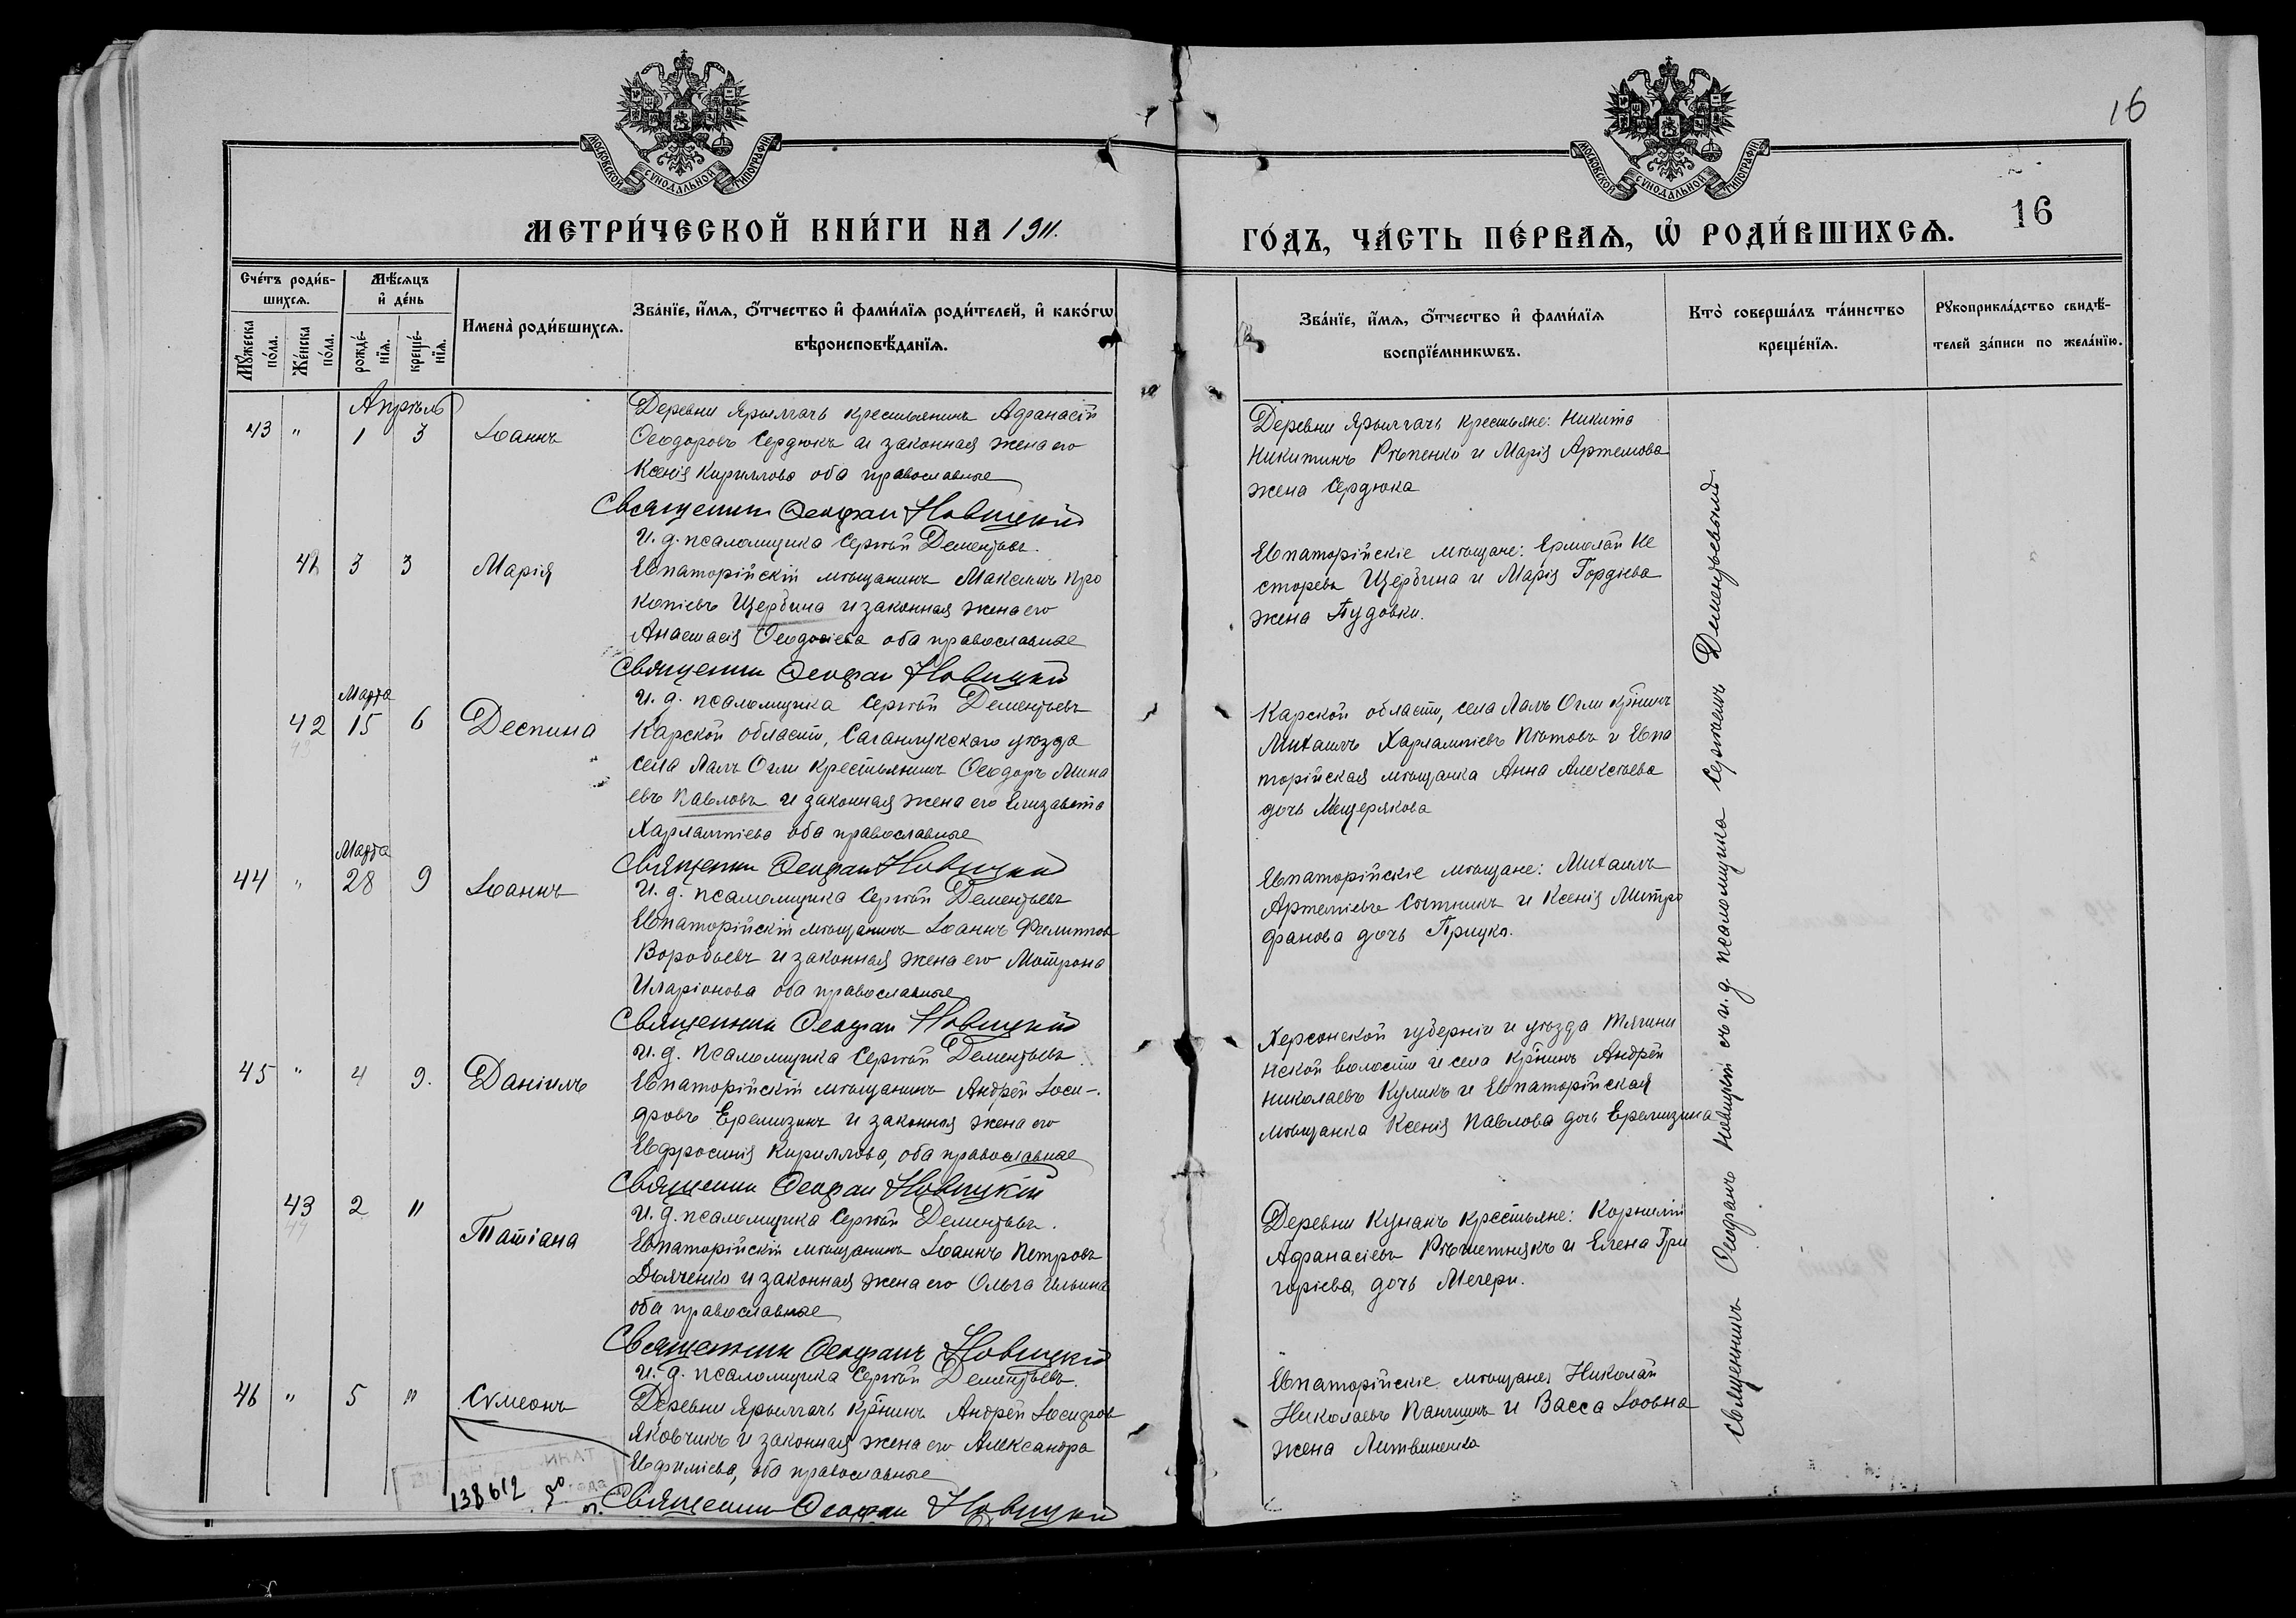 16
МОСКОВСКОЙ СѴНОДАЛЬНОЙ ТИПОГРАФІИ
МОСКОВСКОЙ СѴНОДАЛЬНОЙ ТИПОГРАФІИ
МЕТРИ́ЧЕСКОЙ КНИ́ГИ НА 1911.
ГО́ДЪ, ЧА́СТЬ ПЕ́РВАѦ, Ѡ҆ РОДИ́ВШИХСѦ.
16
Сче́тъ роди́в-
шихсѧ.
Мꙋ́жеска
по́ла.
Же́нска
по́ла.
Мѣ́сѧцъ
и҆ де́нь
рожде́-
нїѧ.
креще́-
нїѧ.
Имена̀ роди́вшихсѧ.
Зва́нїе, и҆́мѧ, ѻ҆́тчество и҆ фами́лїѧ роди́телей, и҆ како́гѡ
вѣроисповѣ́данїѧ.
Зва́нїе, и҆́мѧ, ѻ҆́тчество и҆ фами́лїѧ
воспрїе́мникѡвъ.
Кто̀ соверша́лъ та́инство
креще́нїѧ.
Рꙋкоприкла́дство свидѣ́-
телей за́писи по жела́нїю.
Апрѣль
43 " 1 3 Іоаннъ
Деревни Ярылгачъ крестьянинъ Афанасій
Ѳеодоровъ Сердюкъ и законная жена его
Ксенія Кириллова оба православные
Священникъ Ѳеофан Новицкій
И. д. псаломщика Сергѣй Дементьевъ.
Деревни Ярылгачъ крестьяне: Никита
Никитинъ Рѣпенко и Марія Артемова
жена Сердюка
3 3 Марія
Евпаторійскій мѣщанинъ Максимъ Про
копіевъ Щербина и законная жена его
Анастасія Ѳеодосіева оба православные
Священник Ѳеофан Новицкій
И. д. псаломщика Сергѣй Дементьевъ
Евпаторійскіе мѣщане: Ермолай Не
сторевъ Щербина и Марія Гордіева
жена Пудовки.
Марта
42 15 6 Деспина
Карской области, уѣзда
села Лалъ Огли крестьянинъ Ѳеодоръ Мина
евъ Павловъ и законная жена его Елизавета
Харлампіева оба православные
Священник Ѳеофан Новицкій
И. д. псаломщика Сергѣй Дементьевъ
Карской области, села Лалъ Огли кр-нинъ
Михаилъ Харлампіевъ и Евпа
торійская мѣщанка Анна Алексѣева
дочь Мещерякова
Марта
44 " 28 9 Іоаннъ
Евпаторійскій мѣщанинъ Іоаннъ Филиппов
Воробьевъ и законная жена его Мотрона
Иларіонова оба православные
Священник Ѳеофан Новицкій
И. д. псаломщика Сергѣй Дементьевъ
Евпаторійскіе мѣщане: Михаилъ
Артеміевъ Сытникъ и Ксенія Митро
фанова дочь Прицко.
45 " 4 9. Даніилъ
Евпаторійскій мѣщанинъ Андрей Іоси-
фовъ Еремизинъ и законная жена его
Евфросинія Кириллова, оба православные
Священник Ѳеофан Новицкій
И. д. псаломщика Сергѣй Дементьевъ.
Херсонской губерніи и уѣзда Тягин
нской волости и села кр-нинъ Андрей
Николаевъ Куликъ и Евпаторійская
мѣщанка Ксенія Павлова дочь Еремизина
43 2 " Татіана
Евпаторійскій мѣщанинъ Іоаннъ Петровъ
Дьяченко и законная жена его Ольга Ильина
оба православные
Священник Ѳеофанъ Новицкій
И. д. псаломщика Сергѣй Дементьевъ.
Деревни Кунанъ крестьяне: Корнилій
Афанасіевъ Рѣшетнякъ и Елена Гри
горіева, дочь Мегери.
46 " 5 " Сѵмеонъ
Деревни Ярылгачъ кр-нинъ Андрей Іосифов
Яковчикъ и законная жена его Александра
Евфиміева, оба православные
Священник Ѳеофан Новицкій
Евпаторійскіе мѣщане, Николай
Николаевъ Панчинъ и Васса Іовна
жена Литвиненка
Священникъ Ѳеофанъ Новицкій съ и. д. псаломщика Сергѣемъ Дементьевымъ
138612